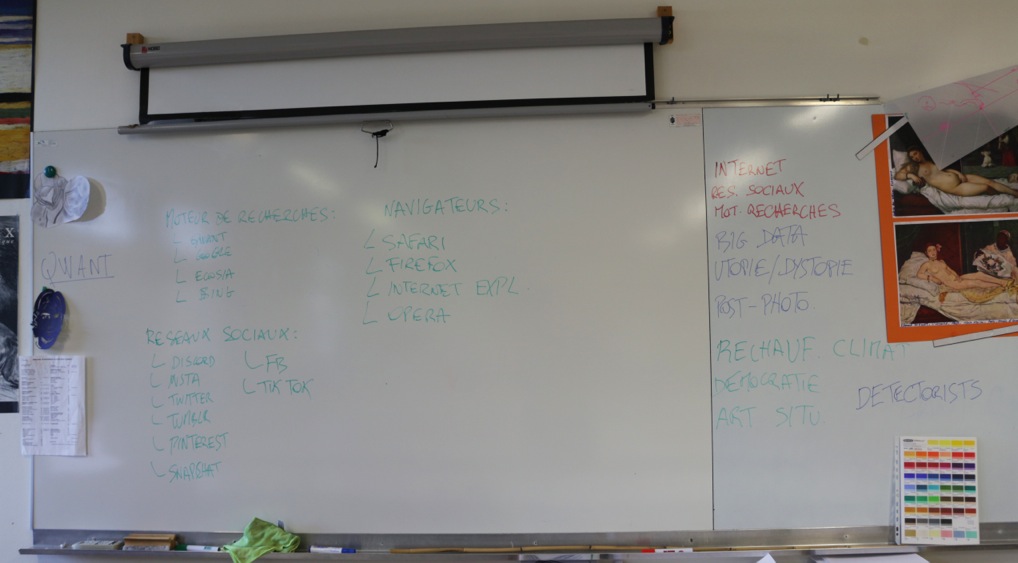 QWANT
MOTEUR DE RECHERCHES:
GOOGLE
ECOSIA
BING
RESEAUX SOCIAUX:
DISCORD
INSTA
TWITTER
TUMBLR
PINTEREST
SNAPCHAT
FB
TIK TOK
NAVIGATEURS:
SAFARI
FIREFOX
INTERNET EXPL.
OPERA
INTERNET
RES. SOCIAUX
MOT. RECHERCHES
BIG DATA
UTOPIE/DYSTOPIE
POST-PHOTO.
RECHAUF. CLIMAT
DEMOCRATIE
ART SITU.
DETECTORISTS